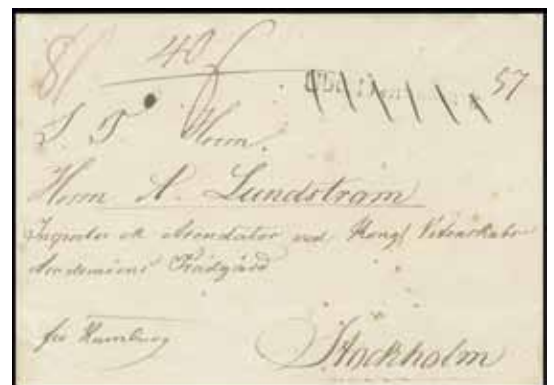 8/ 40 57
S. T. Herrn
Herrn A. Lundstram
Inspector ok Arendator ved Kongl Vetenskabs
Academiens Trädgård
fro Hamburg
Stockholm